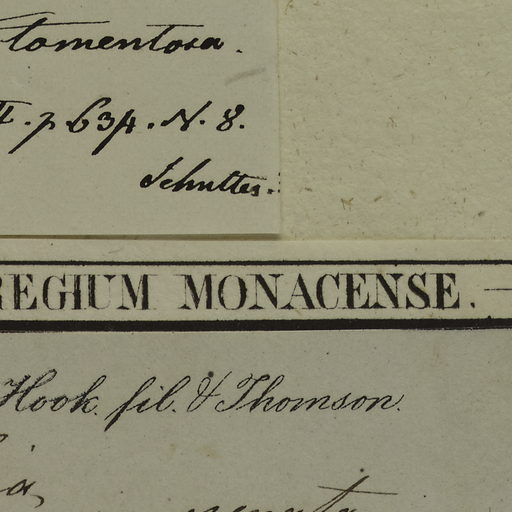 tomentosa.
. p 634. N. 8.
Schultes.
REGIUM MONACENSE.
Hook. fil. & Thomson.